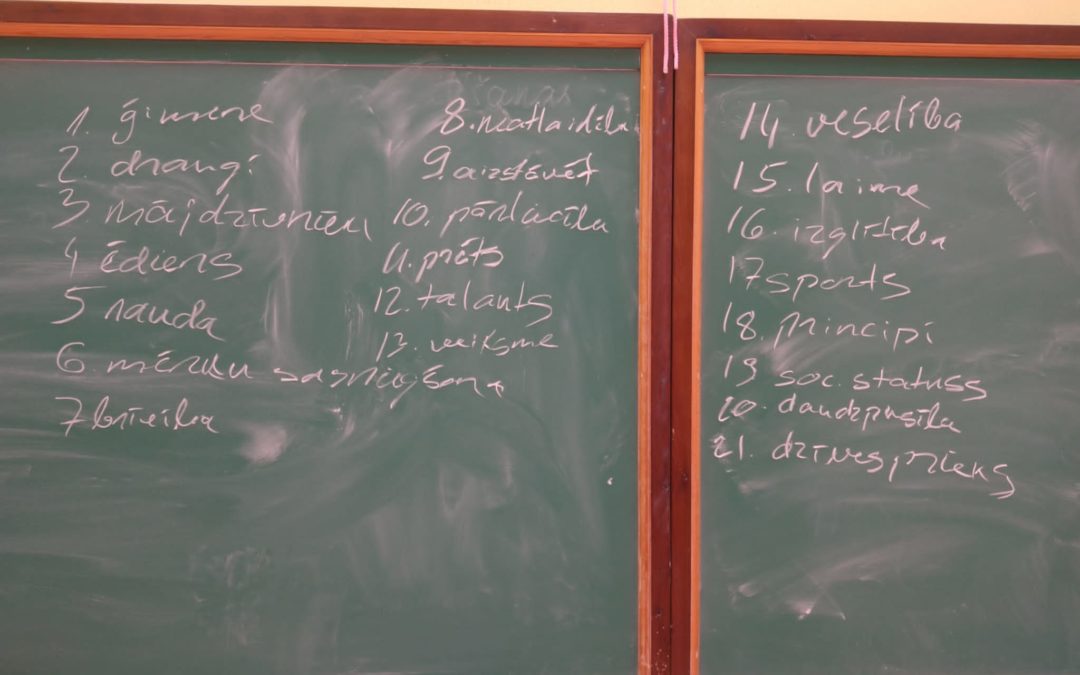 1. ģimene
2. draugi
3. mājdzīvnieki
4 ēdiens
5 nauda
6. mērķu sasniegšana
7 brīvība
8. neatlaidība
9. aizstāvēt
10. pārliecība
11. prāts
12. talants
13. veiksme
14. veselība
15. laime
16. izglītība
17 sports
18. principi
19 soc. statuss
20. daudzpusība
21. dzīvesprieks